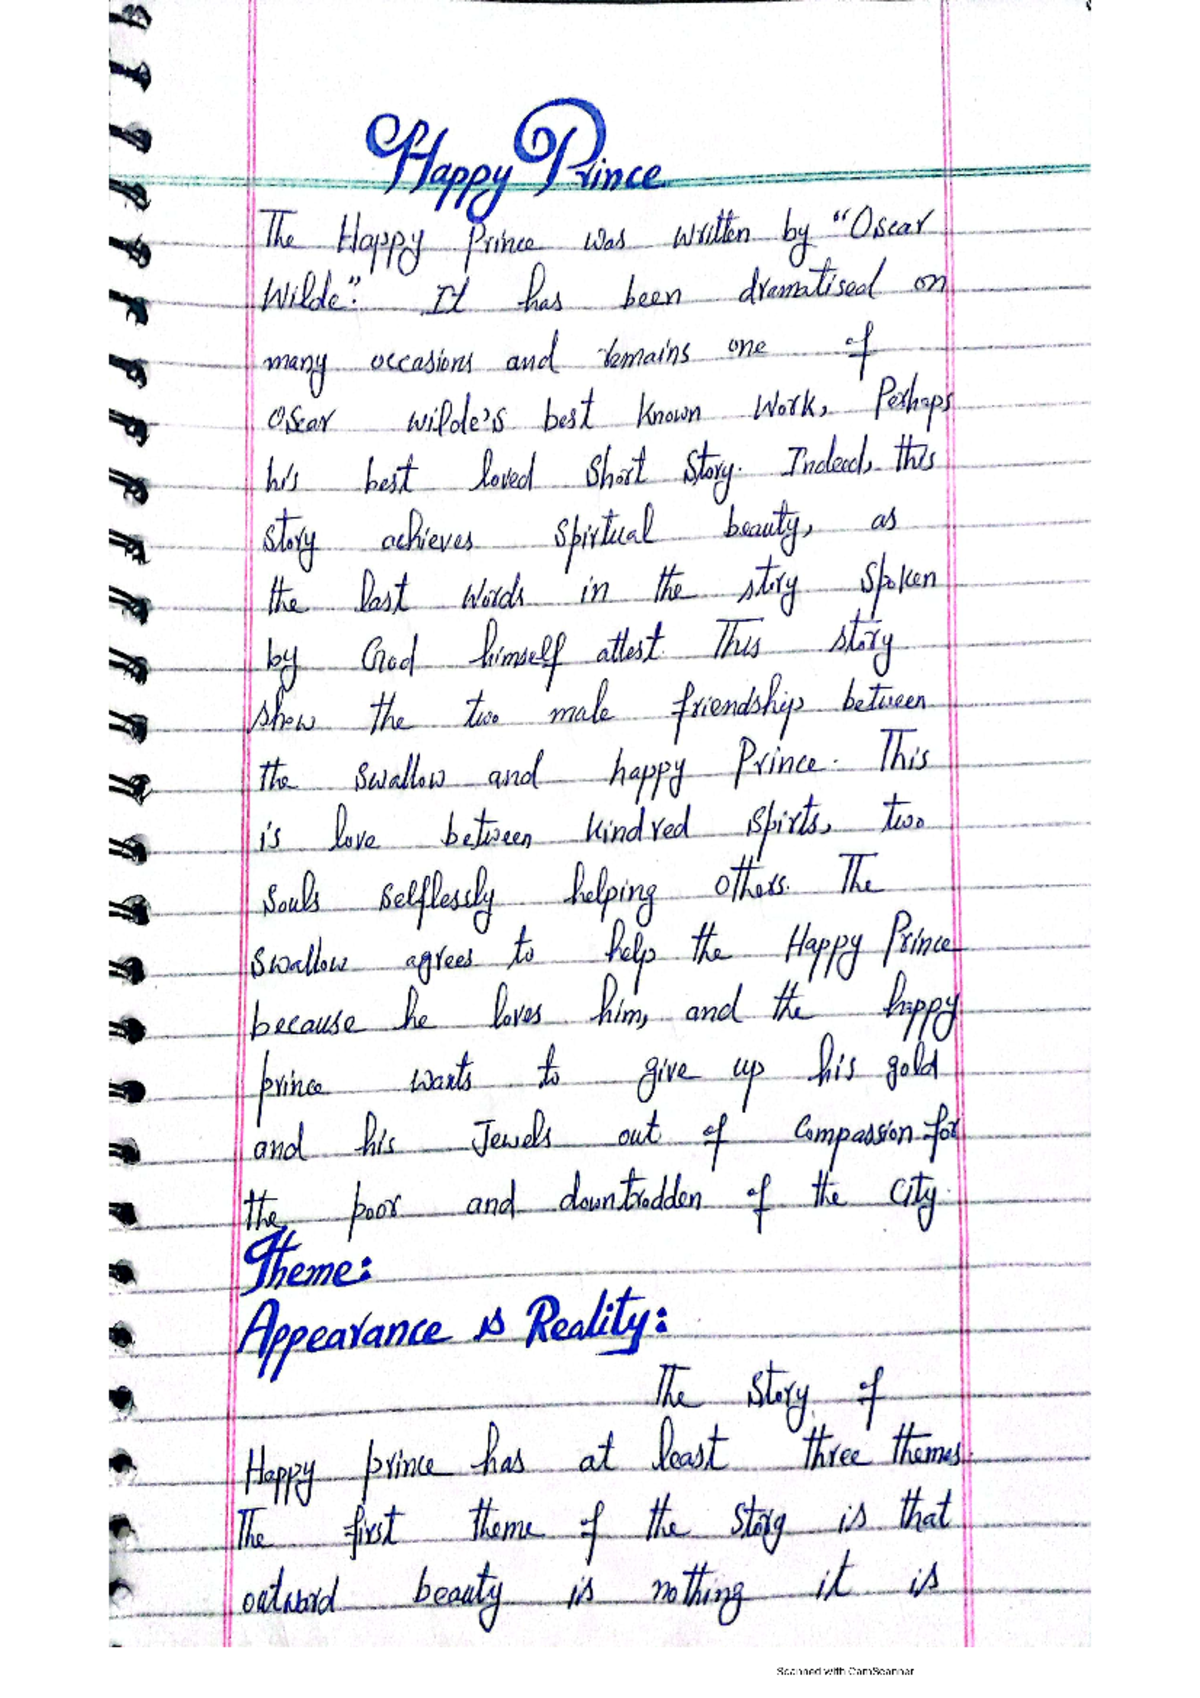 Happy Prince
The Happy Prince was written by "Oscar
Wilde". It has been dramatised on
many occasions and remains one of
Oscar Wilde's best known work, Perhaps
his best loved short story. Indeed, this
story achieves spirtual beauty, as
the last words in the story spoken
by God himself attest. This story
show the two male friendship between
the swallow and happy Prince. This
is love between kindred spirts, two
souls selflessly helping others. The
swallow agrees to help the Happy Prince
because he loves him, and the happy
prince wants to give up his gold
and his Jewels out of compassion for
the poor and downtrodden of the city.
Theme:
Appearance is Reality:
The story of
Happy prince has at least three themes.
The first theme of the story is that
outward beauty is nothing it is
Scanned with CamScanner